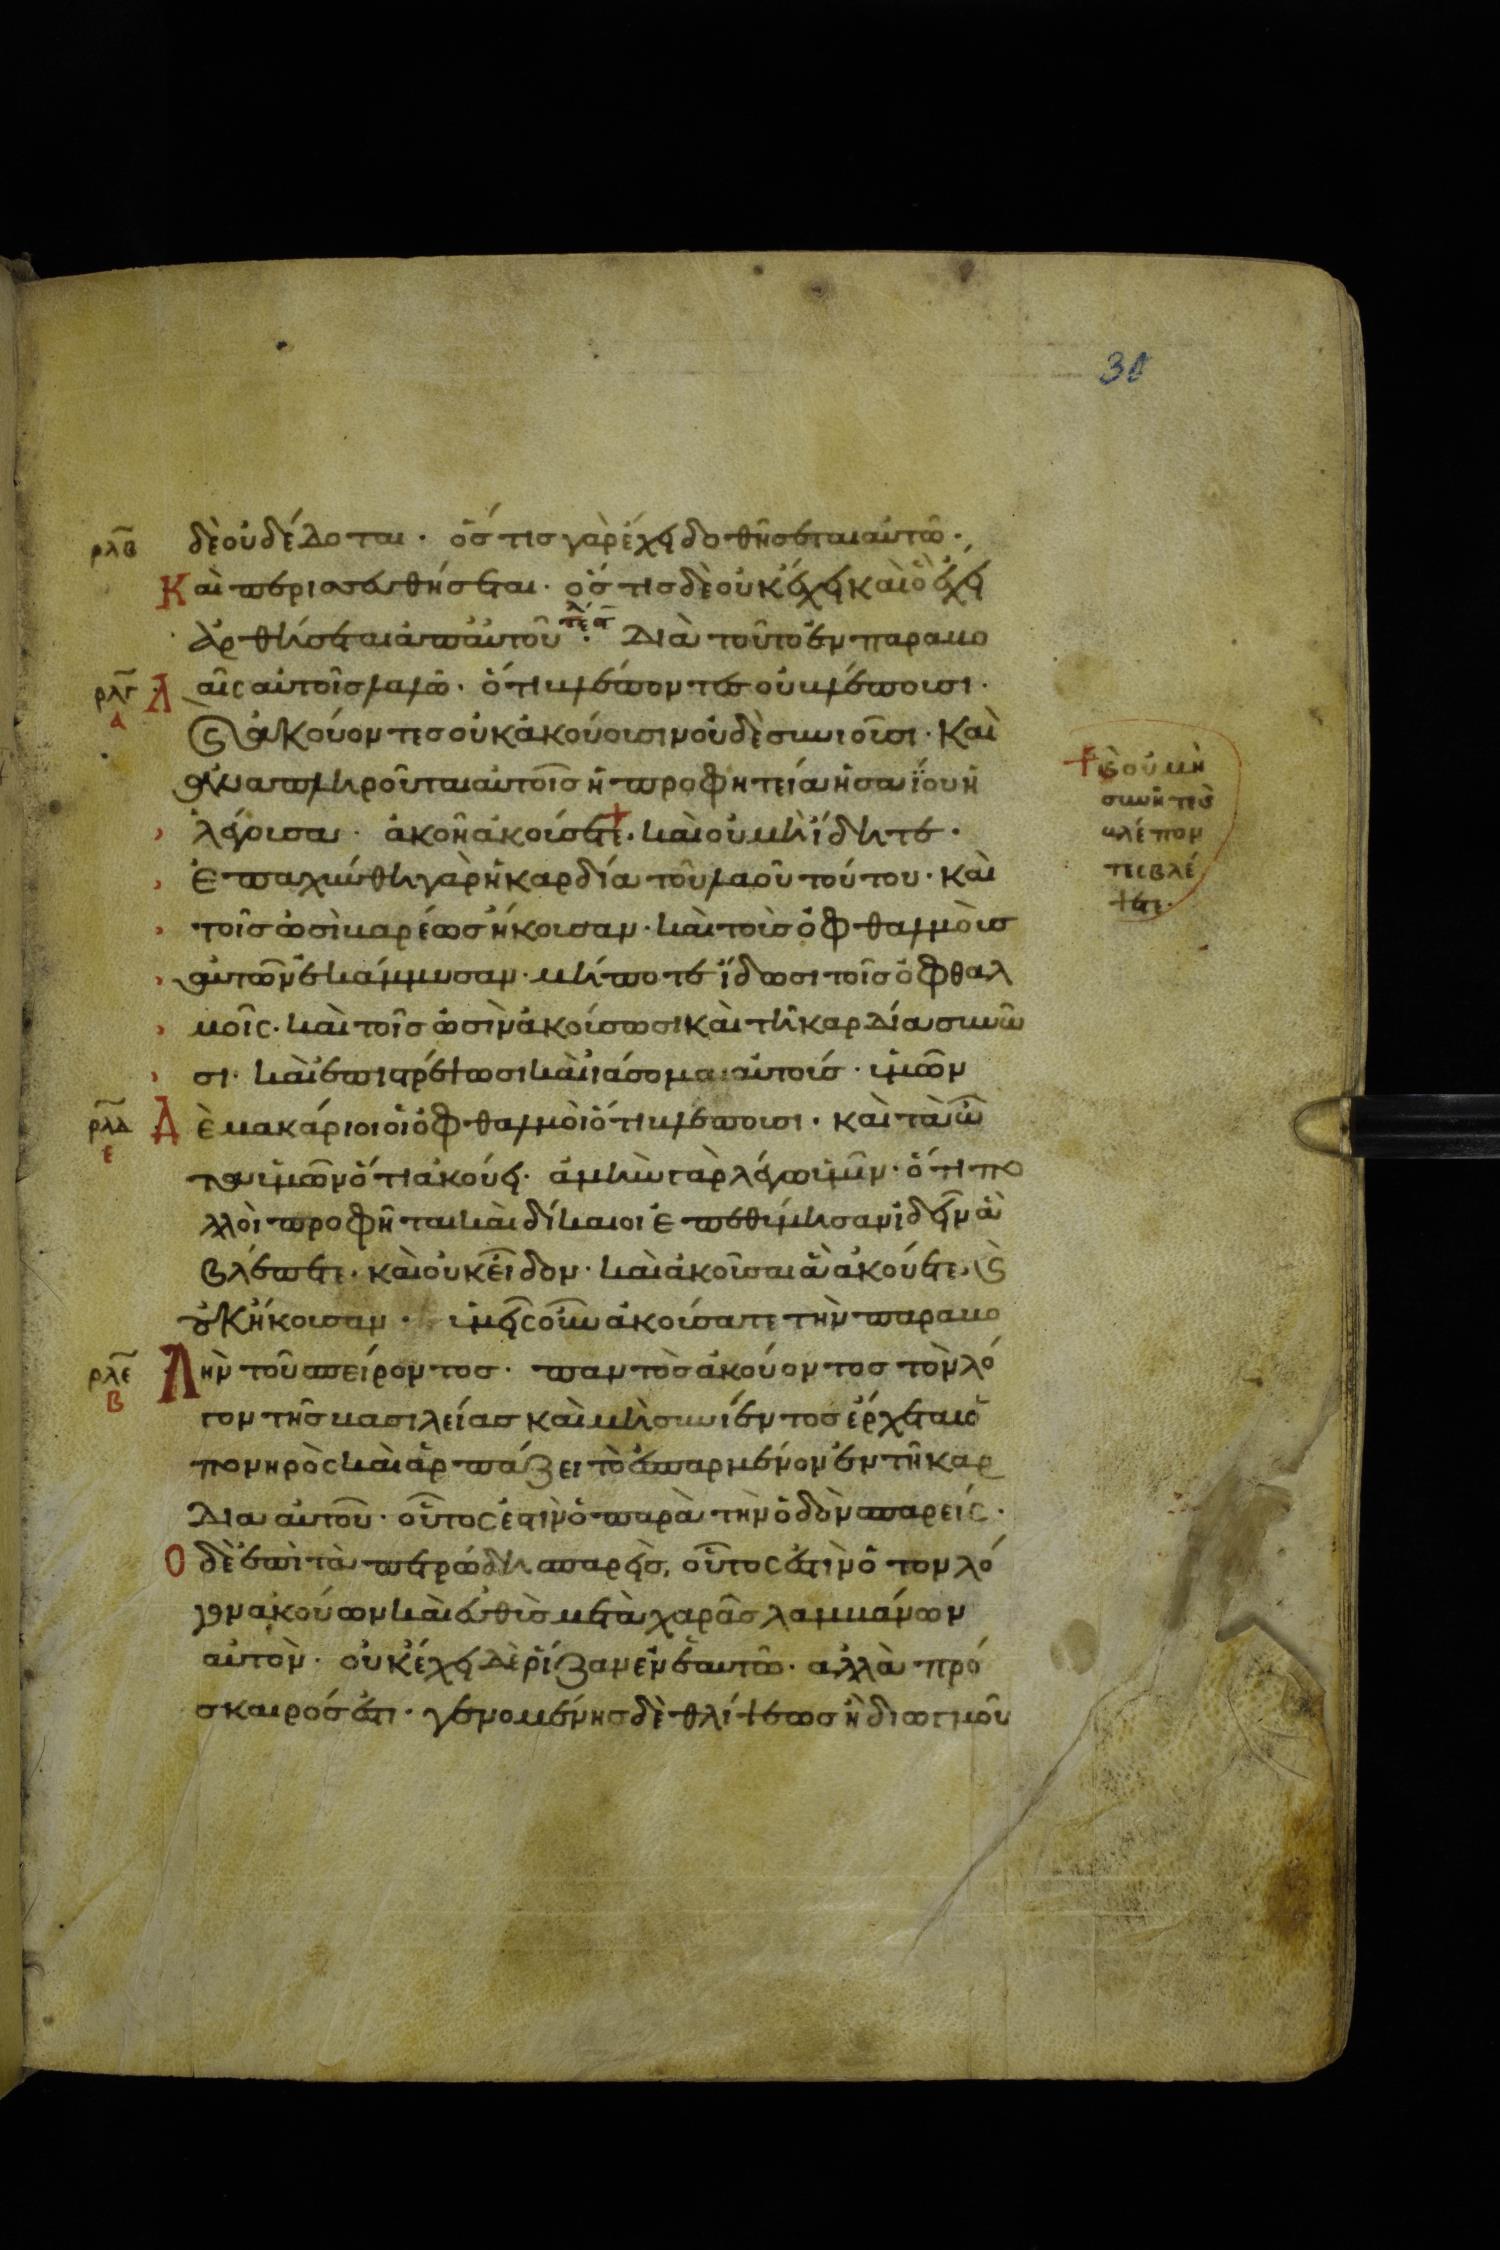 30
ρλβ
δὲ οὐ δέδοται · ὅστις γὰρ ἔχει δοθήσεται αὐτῶ ·
Καὶ περισσευθήσεται · ὅστις δὲ οὐκ ἔχει καὶ ὃ ἔχει
ἀρθήσεται ἀπ αὐτοῦ · Διὰ τοῦτο ἐν παραβο
ρλγ
α
Λ αῖς αὐτοῖς λαλῶ · ὅτι βλέποντες οὐ βλέπουσι ·
ϗ ἀκούοντες οὐκ ἀκούουσιν οὐδὲ συνιοῦσι · Καὶ
ἀναπληροῦται αὐτοῖς ἡ προφητεία ἡσαΐου ἡ
λέγουσα · ἀκοῆ ἀκούσετε · καὶ οὐ μὴ ἴδητε ·
ἐπαχύνθη γὰρ ἡ καρδία τοῦ λαοῦ τούτου · καὶ
τοῖς ὠσὶ βαρέως ἤκουσαν · καὶ τοὺς ὀφθαλμοὺς
αὐτῶν ἐκάμμυσαν · μήποτε ἴδωσι τοῖς ὀφθαλ
μοῖς · καὶ τοῖς ὠσὶν ἀκούσωσι καὶ τῆ καρδία συνῶ
σι · καὶ ἐπιστρέψωσι καὶ ἰάσομαι αὐτούς · ὑμῶν
ρλδ
ε
Δ ὲ μακάριοι οἱ ὀφθαλμοὶ ὅτι βλέπουσι · καὶ τὰ ὦ
τα ὑμῶν ὅτι ἀκούει · ἀμὴν γὰρ λέγω ὑμῖν · ὅτι πο
λλοὶ προφῆται καὶ δίκαιοι ἐπεθύμησαν ἰδεῖν ἃ
βλέπετε · καὶ οὐκ εἶδον · καὶ ἀκοῦσαι ἃ ἀκούετε · ϗ
οὐκ ἤκουσαν · ὑμεῖς οὖν ἀκούσατε τὴν παραβο
ρλε
β
Λ ὴν τοῦ σπείροντος · παντὸς ἀκούοντος τὸν λό
γον τῆς βασιλείας καὶ μὴ συνιέντος ἔρχεται ὁ
πονηρὸς καὶ ἁρπάζει τὸ ἐσπαρμένον ἐν τῆ καρ
δία αὐτοῦ · οὗτος ἐστὶν ὁ παρὰ τὴν ὁδὸν σπαρείς ·
Ο δὲ ἐπὶ τὰ πετρώδη σπαρεὶς, οὗτος ἐστὶν ὁ τον λό
γον ἀκούων καὶ εὐθὺς μετὰ χαρᾶς λαμβάνων
αὐτὸν · οὐκ ἔχει δὲ ῥίζαν ἐν ἑαυτῶ · ἀλλὰ πρό
σκαιρός ἐστι · γενομένης δὲ θλίψεως ἢ διωγμοῦ
ϗ οὐ μὴ
συνῆτε ϗ
βλέπον
τες βλέ
ψετε ·